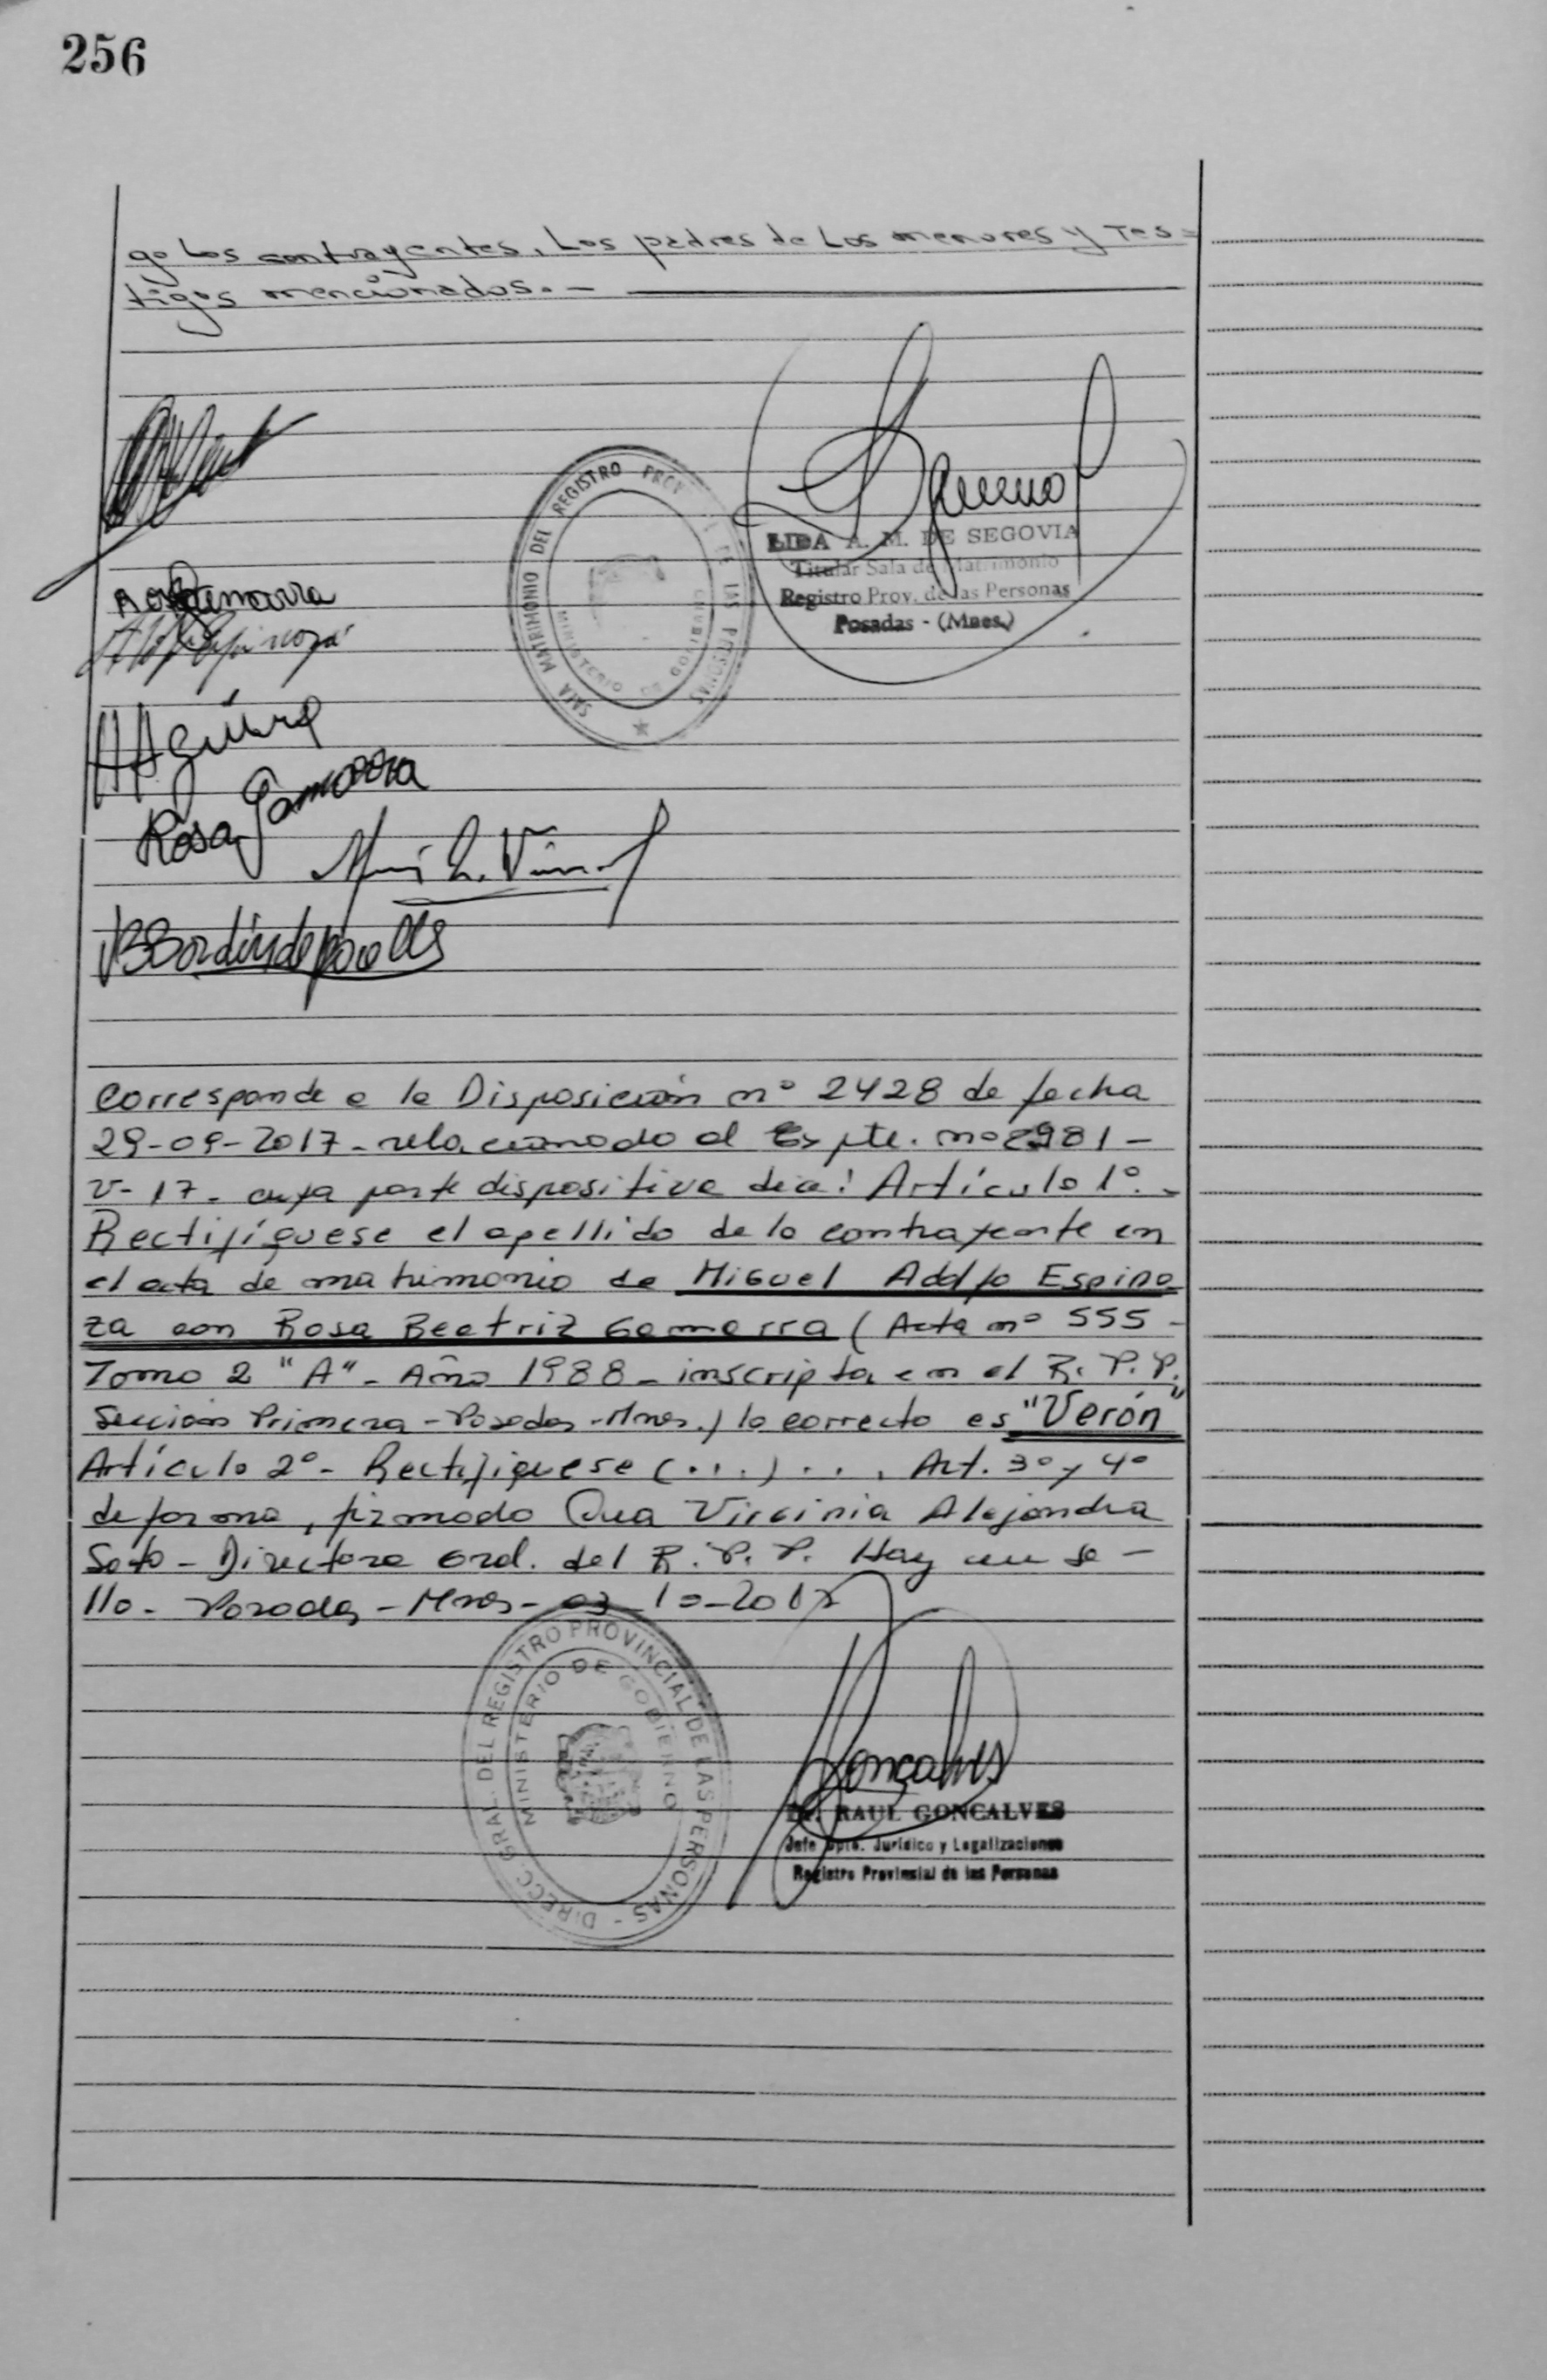 256
go Los contrayentes, Los padres de Los menores y Tes=
tigos mencionados.-
SALA MATRIMONIO DEL REGISTRO PROV DE LAS PERSONAS
MINISTERIO DE GOBIERNO
LIDA A. M. DE SEGOVIA
Titular Sala de Matrimonio
Registro Prov. de las Personas
Posadas - (Mnes.)
Aguirre
Rosa Gamarra
Corresponde a la Disposición nº 2428 de fecha
29-09-2017- relacionado al Expte. nº 2981-
V-17- cuya parte dispositiva dice: Artículo 1º.-
Rectifíquese el apellido de la contrayente en
el acta de matrimonio de Miguel Adolfo Espino
za con Rosa Beatriz Gamarra (Acta nº 555-
Tomo 2 "A"- Año 1988- inscripta en el R. P. P.
Sección Primera-Posadas-Mnes.) lo correcto es "Verón"
Artículo 2º- Rectifiquese (...)..., Art. 3º y 4º
de forma, firmado Dra Virginia Alejandra
Soto- Directora Gral. del R. P. P. Hay un se-
llo- Posadas-Mnes- 03-10-2017
DIRECC. GRAL. DEL REGISTRO PROVINCIAL DE LAS PERSONAS -
MINISTERIO DE GOBIERNO
Goncalves
Dr. RAUL GONCALVES
Jefe Dpto. Jurídico y Legalizaciones
Registro Provincial de las Personas